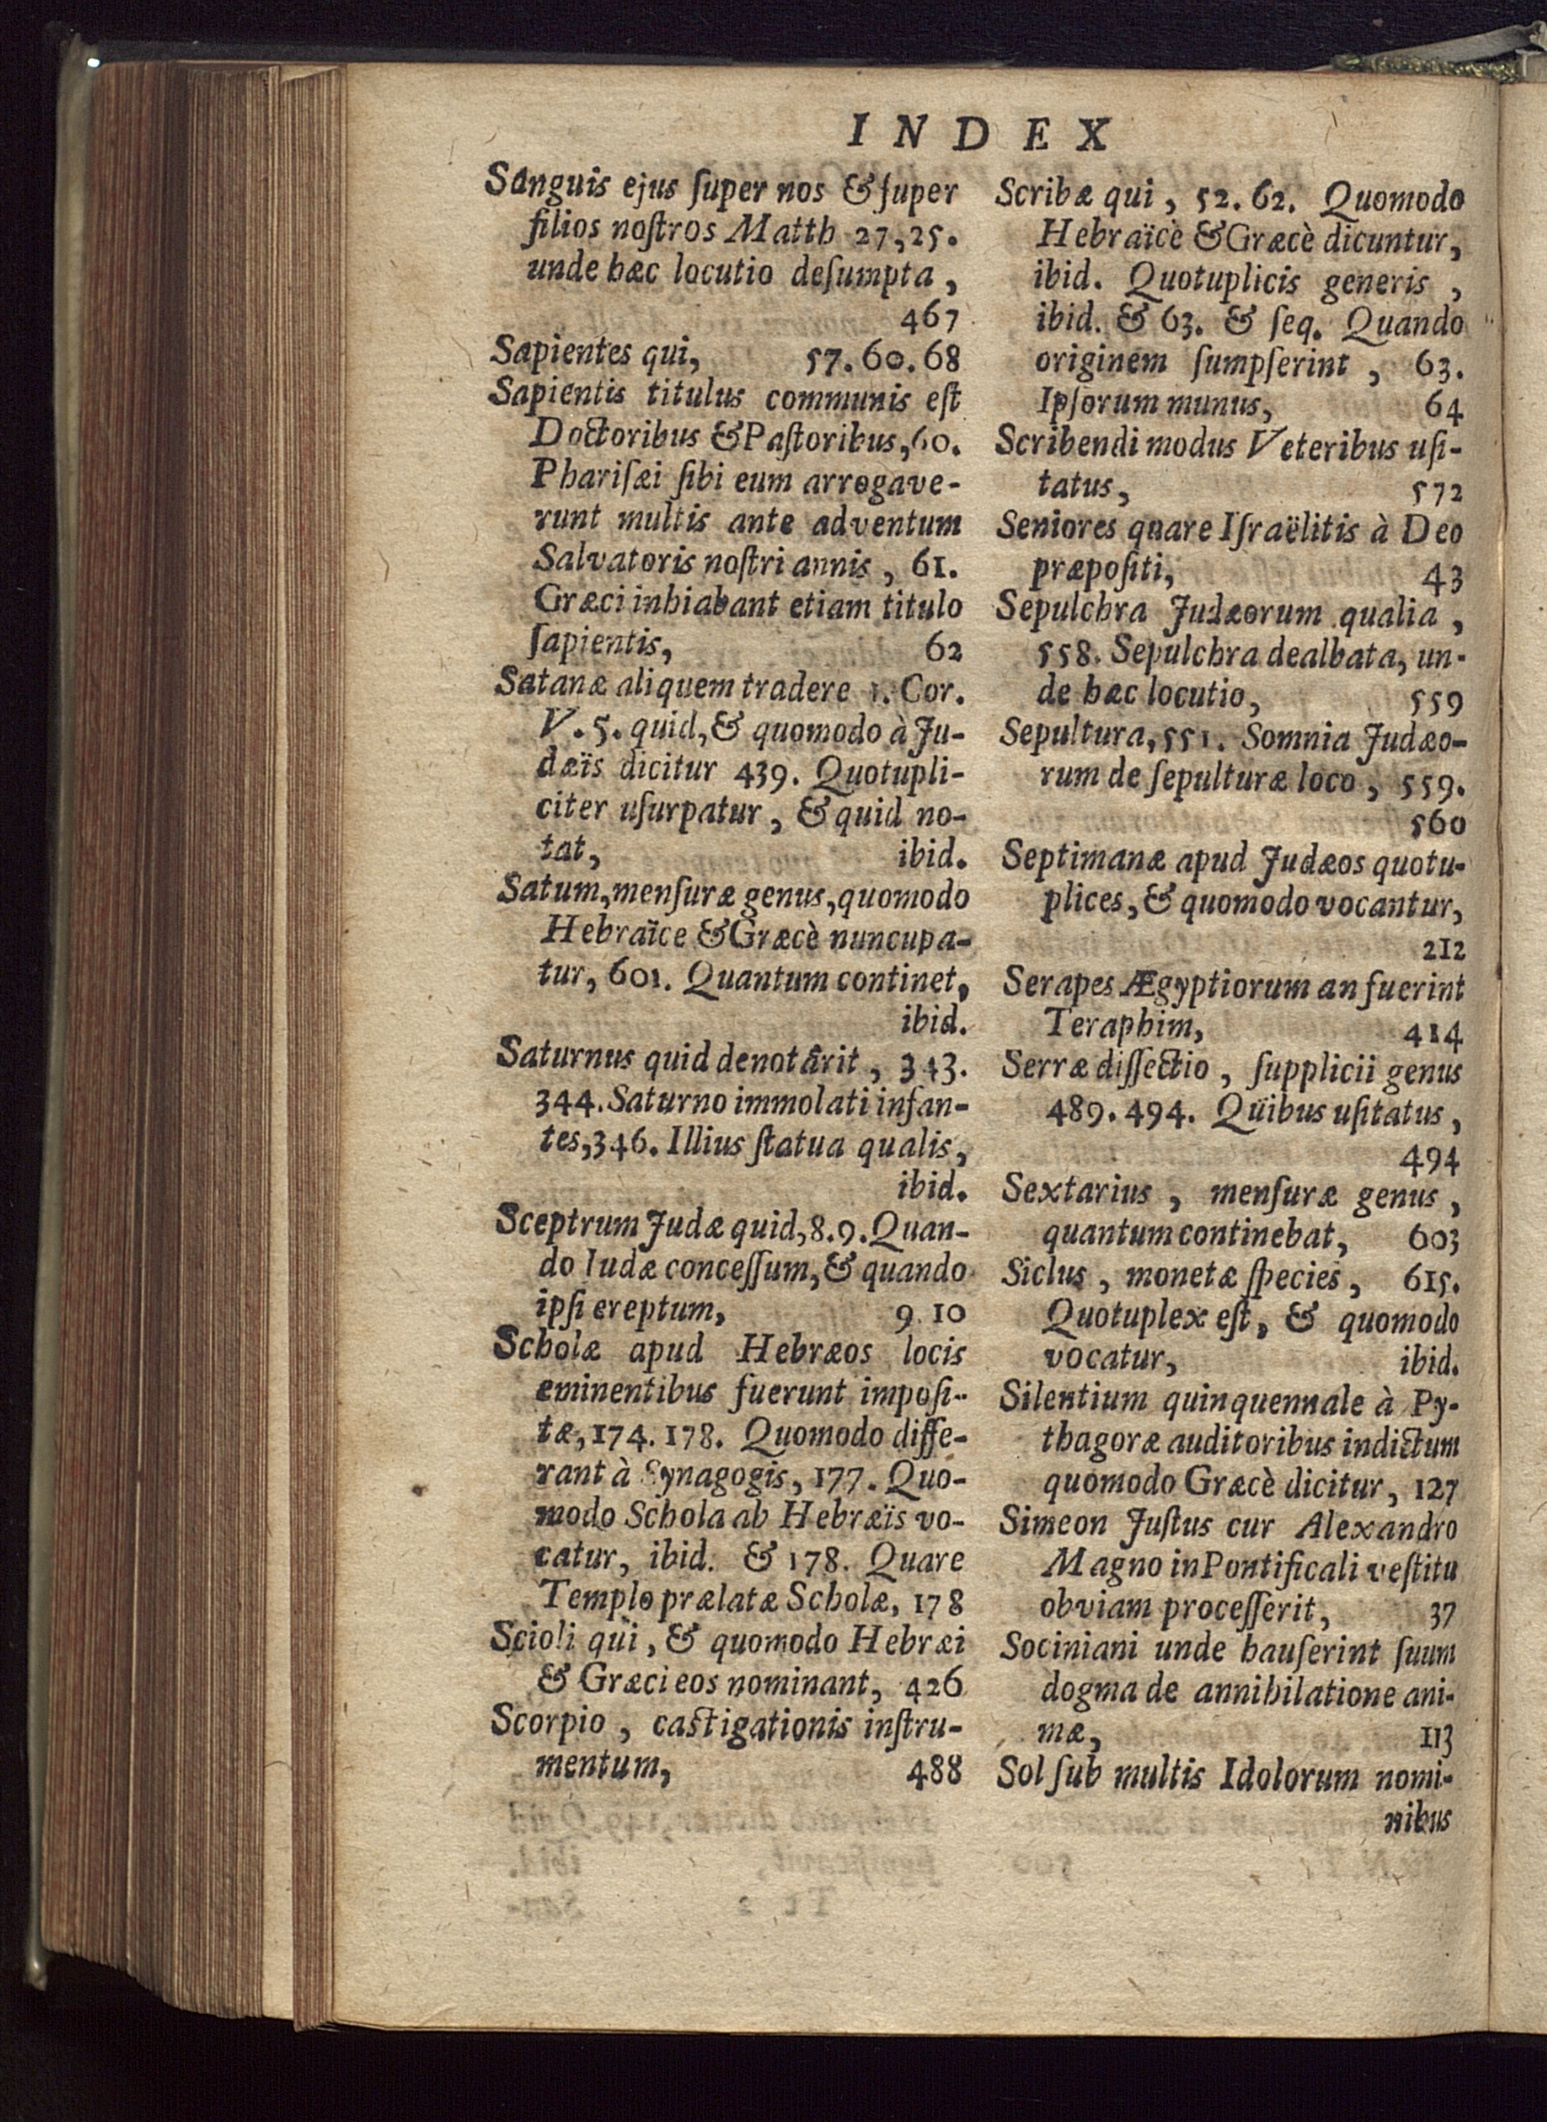 INDEX
Sanguis ejus ſuper nos & ſuper
filios noſtros Matth 27,25.
unde hæc locutio deſumpta,
467
Sapientes qui, 57.60.68
Sapientis titulus communis eſt
Doctoribus & Paſtoribus, 60.
Phariſæi ſibi eum arrogave-
runt multis ante adventum
Salvatoris noſtri annis, 61.
Græci inhiabant etiam titulo
ſapientis, 62
Satanæ aliquem tradere 1. Cor.
V. 5. quid, & quomodo à Ju-
dæïs dicitur 439. Quotupli-
citer uſurpatur, & quid no-
tat, ibid.
Satum, menſuræ genus, quomodo
Hebraïce & Græcè nuncupa-
tur, 601. Quantum continet,
ibid.
Saturnus quid denotârit, 343.
344. Saturno immolati infan-
tes, 346. Illius ſtatua qualis,
ibid.
Sceptrum Judæ quid, 8.9. Quan-
do Iudæ conceſſum, & quando
ipſi ereptum, 9 10
Scholæ apud Hebræos locis
eminentibus fuerunt impoſi-
tæ, 174. 178. Quomodo diffe-
rant à Synagogis, 177. Quo-
modo Schola ab Hebræïs vo-
catur, ibid. & 178. Quare
Templo prælatæ Scholæ, 178
Scioli qui, & quomodo Hebræi
& Græci eos nominant, 426
Scorpio, caſtigationis inſtru-
mentum, 488
Scribæ qui, 52. 62. Quomodo
Hebraïcè & Græcè dicuntur,
ibid. Quotuplicis generis,
ibid. & 63. & ſeq. Quando
originem ſumpſerint, 63.
Ipſorum munus, 64
Scribendi modus Veteribus uſi-
tatus, 572
Seniores quare Iſraëlitis à Deo
præpoſiti, 43
Sepulchra Judæorum qualia,
558. Sepulchra dealbata, un-
de hæc locutio, 559
Sepultura, 551. Somnia Judæo-
rum de ſepulturæ loco, 559.
560
Septimanæ apud Judæos quotu-
plices, & quomodo vocantur,
212
Serapes Ægyptiorum an fuerint
Teraphim, 414
Serræ diſſectio, ſupplicii genus
489. 494. Quibus uſitatus,
494
Sextarius, menſuræ genus,
quantum continebat, 603
Siclus, monetæ ſpecies, 615.
Quotuplex eſt, & quomodo
vocatur, ibid.
Silentium quinquennale à Py-
thagoræ auditoribus indictum
quomodo Græcè dicitur, 127
Simeon Juſtus cur Alexandro
Magno in Pontificali veſtitu
obviam proceſſerit, 37
Sociniani unde hauſerint ſuum
dogma de annihilatione ani-
mæ, 113
Sol ſub multis Idolorum nomi-
nibus